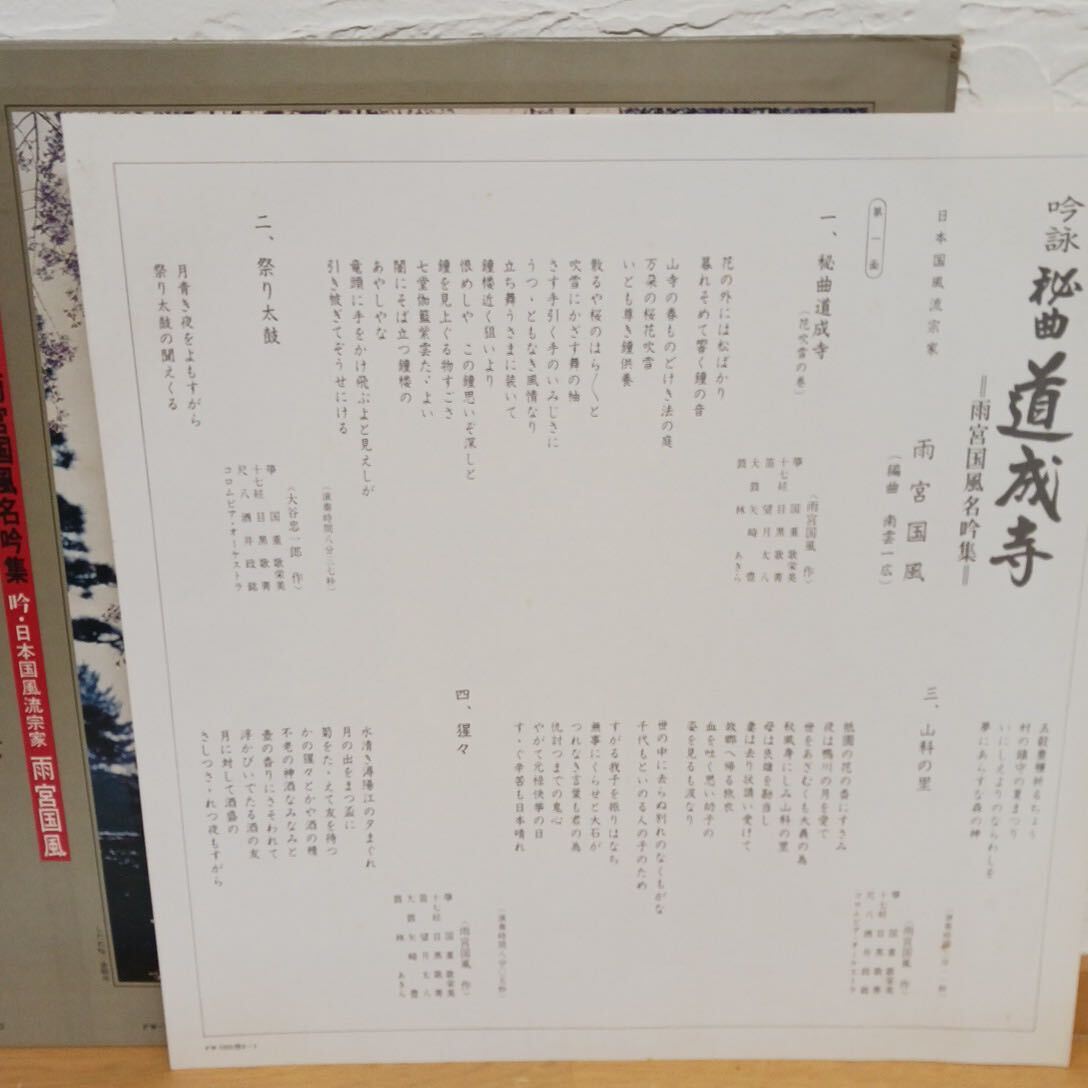 吟詠 秘曲 道成寺
＝雨宮国風名吟集＝
日本国風流宗家 雨宮国風
（編曲 南雲一広）
第一面
一、秘曲道成寺
（花吹雪の巻）
（雨宮国風 作）
箏 国重歌栄美
十七絃 目黒歌菁
笛 望月太八
大鼓 矢崎豊
鼓 林あきら
花の外には松ばかり
暮れそめて響く鐘の音
山寺の春ものどけき法の庭
万朶の桜花吹雪
いども尊き鐘供養
散るや桜のはら〳〵と
吹雪にかざす舞の袖
さす手引く手のいみじさに
うつゝともなき風情なり
立ち舞うさまに装いて
鐘楼近く狙いより
恨めしや この鐘思いぞ深しと
鐘を見上ぐる物すごさ
七堂伽藍紫雲たゞよい
闇にそば立つ鐘楼の
あやしやな
竜頭に手をかけ飛ぶよと見えしが
引き被ぎてぞうせにける
（演奏時間八分三七秒）
二、祭り太鼓
（大谷忠一郎 作）
箏 国重歌栄美
十七絃 目黒歌菁
尺八 酒井政銘
コロムビア・オーケストラ
月青き夜をよもすがら
祭り太鼓の聞えくる
五穀豊穣祈るちょう
村の鎮守の夏まつり
いにしえよりのならわしを
夢にあらずな森の神
三、山科の里
（雨宮国風 作）
箏 国重歌栄美
十七絃 目黒歌菁
尺八 酒井政銘
コロムビア・オーケストラ
祇園の花の香にすさみ
夜は鴨川の月を愛で
世をあざむくも大義の為
秋風身にしみ山科の里
母は良雄を勘当し
妻は去り状請い受けて
故郷へ帰る旅衣
血を吐く思い幼子の
姿を見るも涙なり
世の中に去らぬ別れのなくもがな
千代もといのる人の子のため
すがる我子を振りはなち
無事にくらせと大石が
つれなき言葉も君の為
仇討つまでの鬼心
やがて元禄快挙の日
すゝぐ辛苦も日本晴れ
（演奏時間八分〇五秒）
四、猩々
（雨宮国風 作）
箏 国重歌栄美
十七絃 目黒歌菁
笛 望月太八
大鼓 矢崎豊
鼓 林あきら
水清き潯陽江の夕まぐれ
月の出をまつ盃に
菊をたゝえて友を待つ
かの猩々とかや酒の精
不老の神酒なみなみと
壷の香りにさそわれて
浮かびいでたる酒の友
月に対して酒盛の
さしつさゝれつ夜もすがら
雨宮国風名吟集
吟・日本国風流宗家 雨宮国風